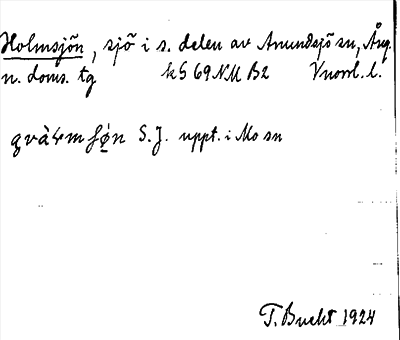 Holmsjön, sjö i s. delen av Anundsjö sn, Ång.
n. doms. tg kS 69 NM B2 Vnorrl. l.
S.J. uppt. i Mo sn
T. Bucht 1924